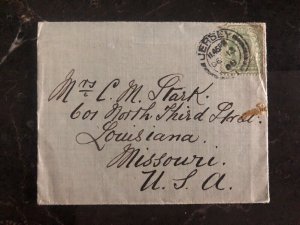 JERSEY
Mrs C. M. Stark.
601 North Third Street.
Louisiana.
Missouri.
U. S. A.